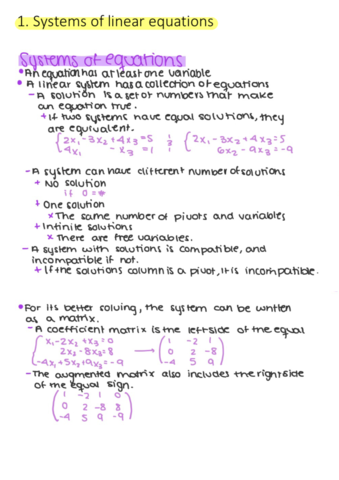 1. Systems of linear equations
Systems of equations
• An equation has at least one variable
• A linear system has a collection of equations
- A solution is a set of numbers that make
an equation true.
+ If two systems have equal solutions, they
are equivalent.
{ 2x₁ - 3x₂ + 4x₃ = 5 { 2x₁ - 3x₂ + 4x₃ = 5
4x₁ - x₃ = 1 6x₂ - 9x₃ = -9
- A system can have different number of solutions
+ No solution
if 0 = *
+ One solution
x The same number of pivots and variables
+ Infinite solutions
x There are free variables.
- A system with solutions is compatible, and
incompatible if not.
+ If the solutions column is a pivot, it is incompatible.
• For its better solving, the system can be written
as a matrix.
- A coefficient matrix is the left side of the equal
{ x₁ - 2x₂ + x₃ = 0 ( 1 -2 1 )
2x₂ - 8x₃ = 8 → 0 2 -8
-4x₁ + 5x₂ + 9x₃ = -9 -4 5 9
- The augmented matrix also includes the right side
of the equal sign.
( 1 -2 1 0 )
0 2 -8 8
-4 5 9 -9